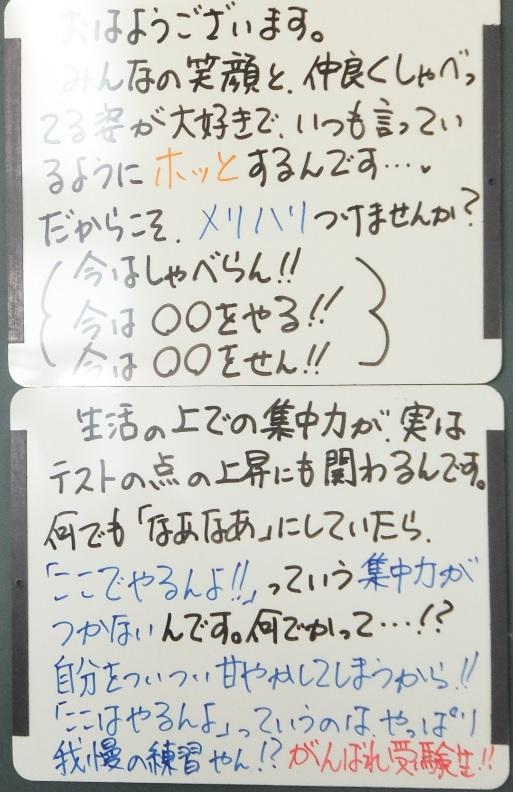 おはようございます。
みんなの笑顔と、仲良くしゃべっ
てる姿が大好きで、いつも言ってい
るようにホッとするんです…
だからこそ、メリハリつけませんか?
今はしゃべらん!!
今は〇〇をやる!!
今は〇〇をせん!!
生活の上での集中力が、実は
テストの点の上昇にも関わるんです。
何でも「なあなあ」にしていたら、
「ここでやるんよ!!」っていう集中力が
つかないんです。何でかって…!?
自分をついつい甘やかしてしまうから!!
「ここはやるんよ」っていうのは、やっぱり
我慢の練習やん!?がんばれ受験生!!